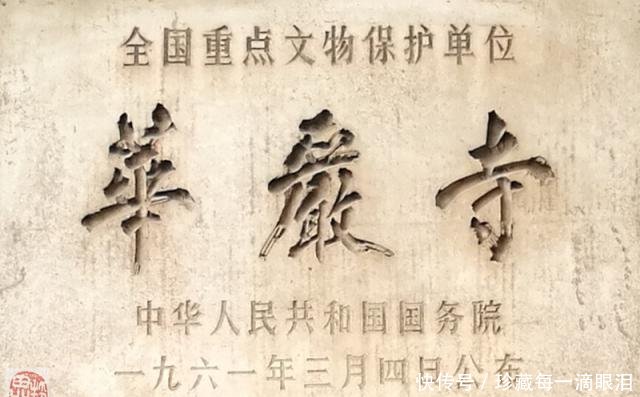 全国重点文物保护单位
華嚴寺
中华人民共和国国务院
一九六一年三月四日公布
快传号／珍藏每一滴眼泪